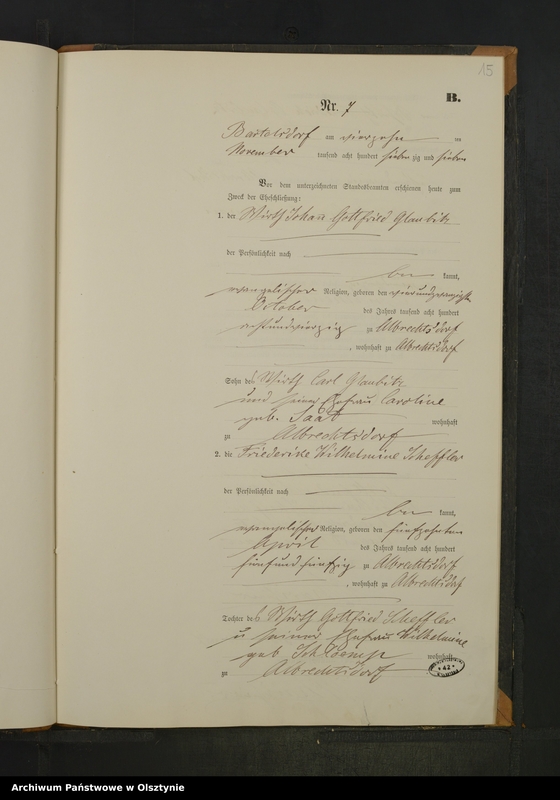 15
B.
Nr. 7
Bartelsdorf am vierzehn ten
November tausend acht hundert siebenzig und sieben
Vor dem unterzeichneten Standesbeamten erschienen heute zum
Zweck der Eheschließung:
1. der Wirth Johann Gottfried Glaubitz
der Persönlichkeit nach
be kannt,
evangelischer Religion, geboren den vierundzwanzigsten
October des Jahres tausend acht hundert
achtundvierzig zu Albrechtsdorf
, wohnhaft zu Albrechtsdorf
Sohn des Wirth Carl Glaubitz
und seiner Ehefrau Caroline
geb. Saat wohnhaft
zu Albrechtsdorf
2. die Friederike Wilhelmine Scheffler
der Persönlichkeit nach
be kannt,
evangelischer Religion, geboren den fünfzehnten
April des Jahres tausend acht hundert
fünfundfünfzig zu Albrechtsdorf
, wohnhaft zu Albrechtsdorf
Tochter des Wirth Gottfried Scheffler
u seiner Ehefrau Wilhelmine
geb wohnhaft
zu Albrechtsdorf
42
Archiwum Państwowe w Olsztynie